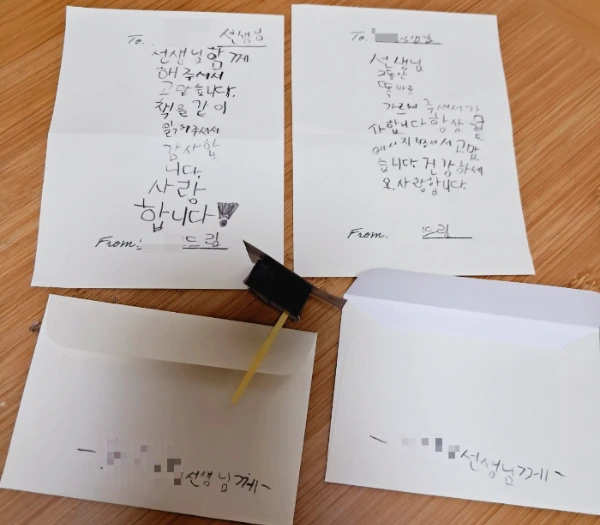 To. 선생님
선생님함께
해주셔서
고맙습니다.
책을같이
읽어주셔서
감사합
니다.
사랑
합니다!
From: 드림
To. 선생님
선생님
그동안
똑바로
가르쳐주셔서가
사합니다항상
고맙
습니다건강하세
요.사랑합니다.
From. 드림
- 선생님께-
- 선생님께-